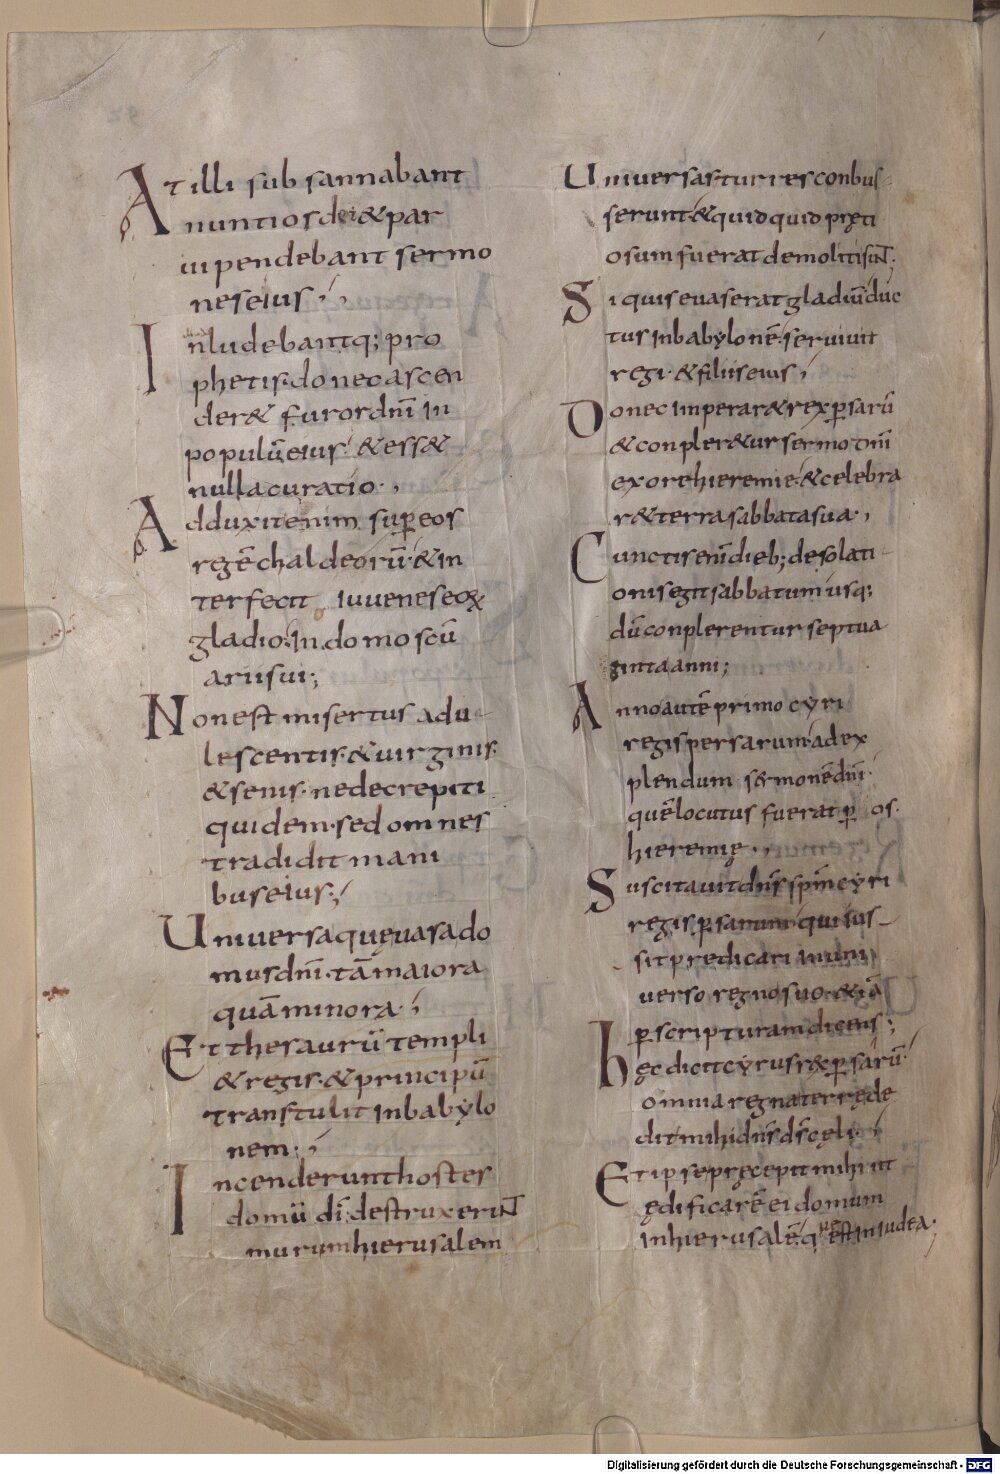 At illi sub sannabant
nuntios dei & par
uipendebant sermo
nes eius;
Inludebantq; pro
phetis. donec ascen
der& furor dnī in
populū eius. & ess&
nulla curatio.,
Adduxit enim sup̱ eos
regē chaldeorū. & in
terfecit iuuenes eoꝝ
gladio. In domo scū
arii sui;
Non est misertus adu-
lescentis. & uirginis.
& senis. nedecrepiti
quidem. sed omnes
tradidit mani
bus eius;
Uniuersaquę uasa do
mus dnī. tā maiora
quā minora.;
Et thesaurū templi
& regis. & principū
transtulit in babylo
nem.;
Incenderunt hostes
domū dī. destruxerunt
murum hierusalem
Uniuersas turres conbus-
serunt. & quidquid pręti
osum fuerat demoliti sunt;
Si quis euaserat gladiū duc
tus in babylonē. seruiuit
regi. & filiis eius,
Donec imperar& rex p̱sarū
& conpler&ur sermo dnī
ex ore hieremie. & celebra
r& terra sabbata sua.,
Cunctis enī dieb; desolati-
onis egit sabbatum usq;
dū conplerentur septua
ginta anni;
Anno autē primo cyri
regis persarum. ad ex
plendum sermonē dnī.
quē locutus fuerat p̱ os.
hieremię.,
Suscitauit dns̄ spm̄ cyri
regis p̱sarum. qui ius-
sit predicari in uni
uerso regno suo. & iā
p̱ scripturam dicens;
hęc dicit cyrus rex p̱sarū.
omnia regna terrę de
dit mihi dns̄ ds̄ cęli.;
Et ipse pręcepit mihi ut
ędificarē ei domum
in hierusalē. que est in iudea.
92
Digitalisierung gefördert durch die Deutsche Forschungsgemeinschaft - DFG